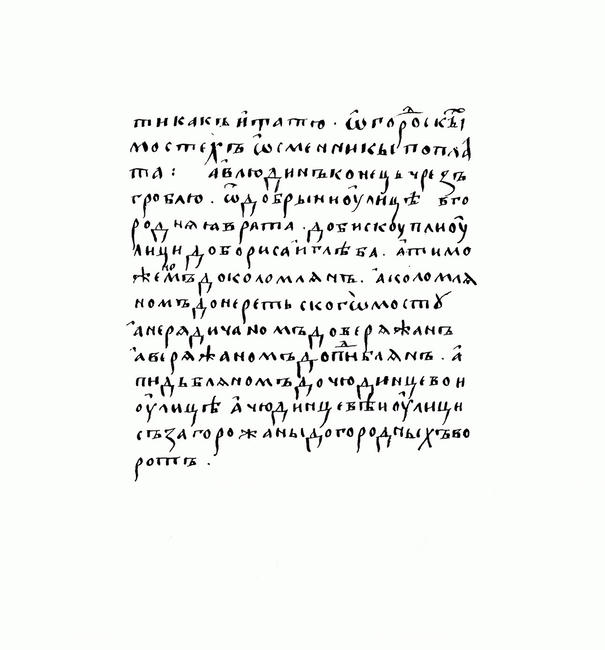 тникакъ и татю . ѿ городскы
мостехъ ѿ сменникы попла
та : а влюдинъ конець чрезъ
греблю . ѿ добрыни оулицѣ в го
родняꙗ врата . до бискоупли оу
лици до бориса и глѣба . а тимо
жемъ до коломлянъ . а коломля
номъ до нереть ского мосту
а нерядичаномъ до вережанъ
а вережаномъ до пидблянъ . а
пидьбляномъ до чюдинцевои
оулицѣ а чюдинцевѣи оулици
съ загорожаны до городных во
ротъ .